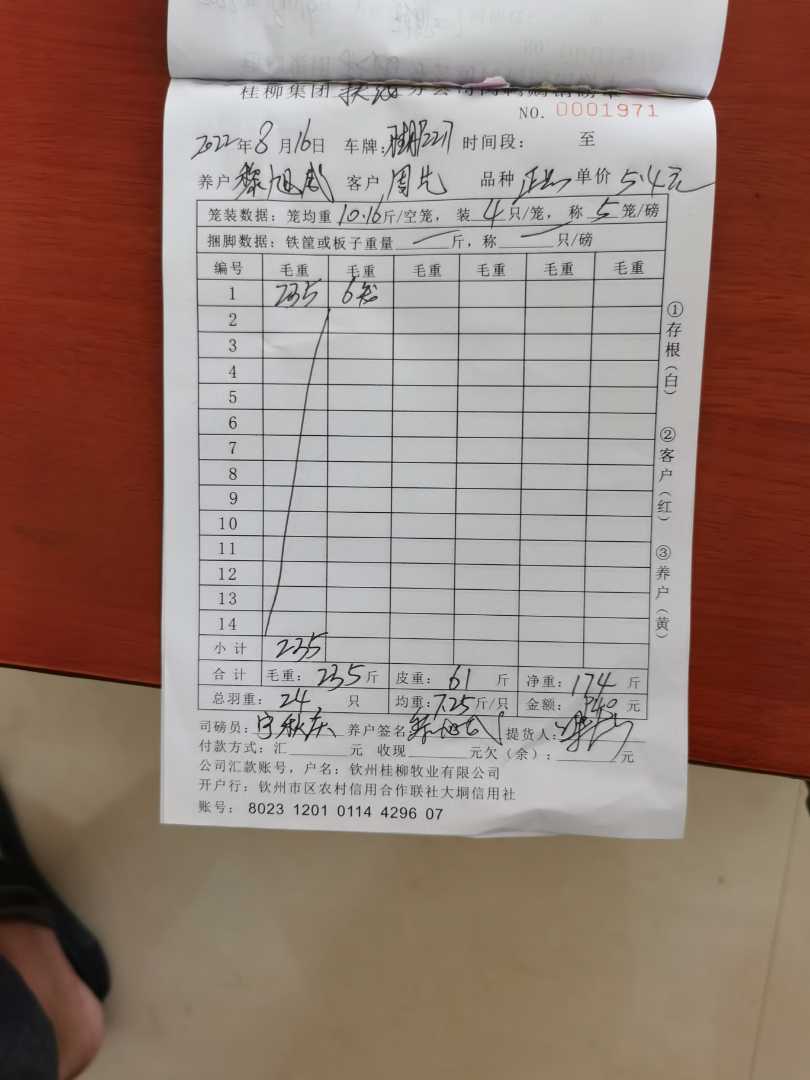 桂柳集团 分公司
NO. 0001971
2022年8月16日 车牌: 时间段: 至
养户 旭武 客户 周先 品种 正 单价 5.4元
笼装数据: 笼均重 10.16斤/空笼, 装 4只/笼, 称 5笼/磅
捆脚数据: 铁筐或板子重量 — 斤, 称 — 只/磅
编号 毛重 毛重 毛重 毛重 毛重 毛重
1 235 6笼
2
3
4
5
6
7
8
9
10
11
12
13
14
小计 235
合计 毛重: 235斤 皮重: 61 斤 净重: 174 斤
总羽重: 24 只 均重: 7.25斤/只 金额: 940 元
司磅员: 宁秋庆 养户签名: 提货人:
付款方式: 汇 元 收现 元欠(余): 元
公司汇款账号, 户名: 钦州桂柳牧业有限公司
开户行: 钦州市区农村信用合作联社大垌信用社
账号: 8023 1201 0114 4296 07
①存根(白)
②客户(红)
③养户(黄)